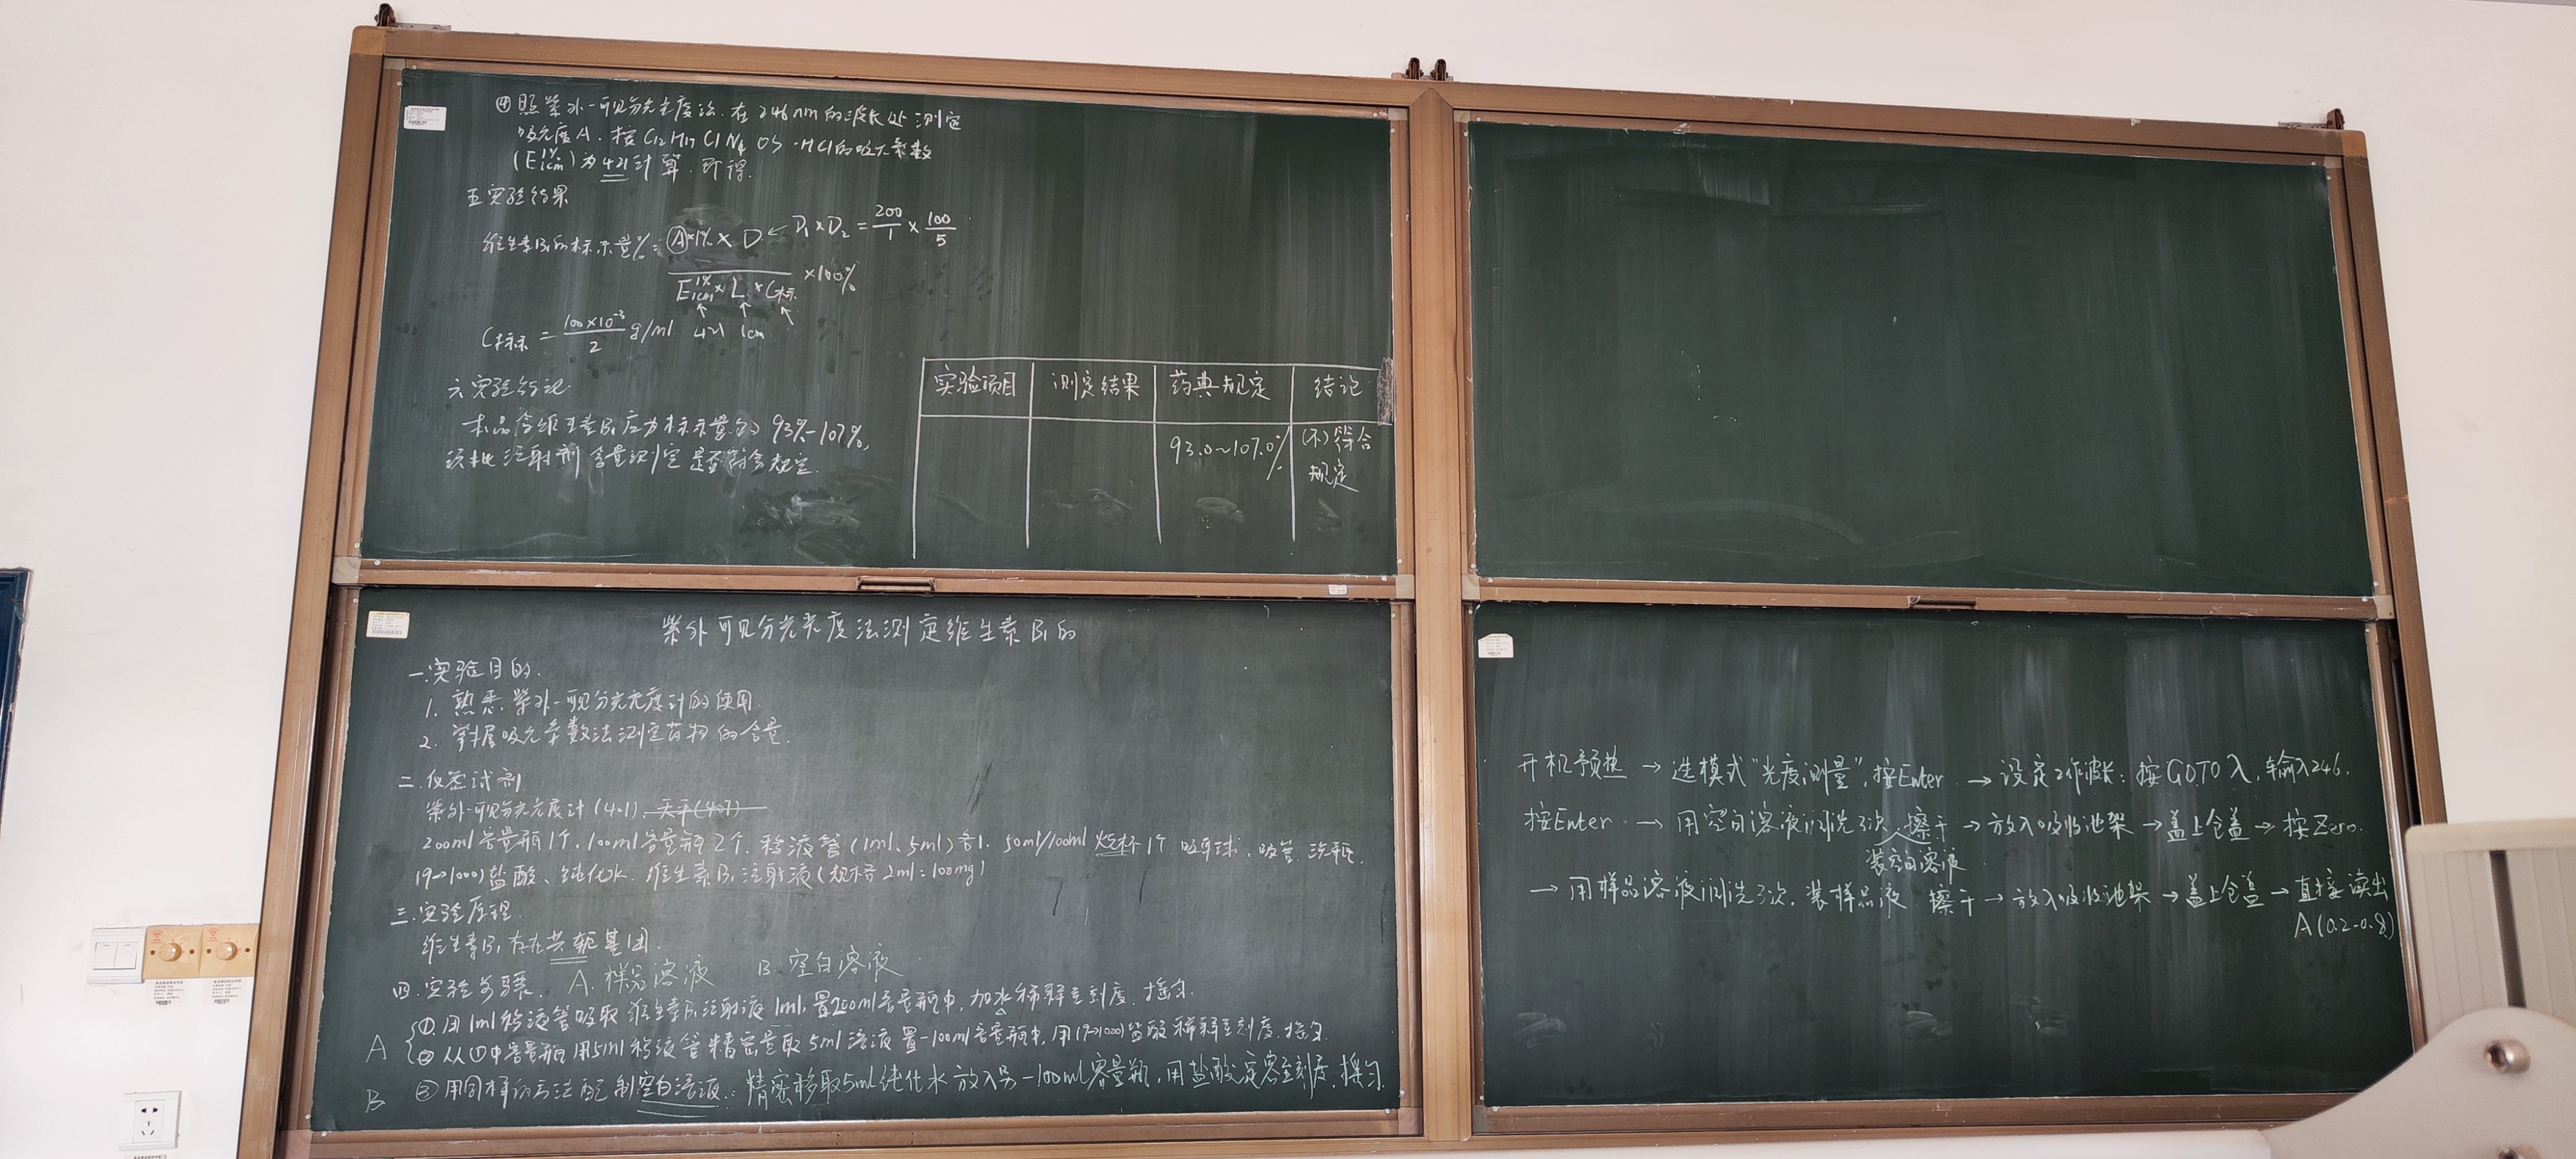 ④照紫外-可见分光光度法.在246nm的波长处测定
吸光度A.按C12H17ClN4OS·HCl的吸光系数
(E1%1cm)为421计算.即得.
五实验结果
维生素B1的标示量%=A×1%×D ← D1×D2=200/1×100/5
E1%1cm×L×C标示 ×100%
421 1cm
C标示=100×10-3/2 g/ml
六实验结论
本品含维生素B1应为标示量的93%-107%,
该批注射剂含量测定是否符合规定.
实验项目 测定结果 药典规定 结论
93.0~107.0% (不)符合
规定
紫外可见分光光度法测定维生素B1的
一.实验目的.
1. 熟悉紫外-可见分光光度计的使用.
2. 掌握吸光系数法测定药物的含量.
二.仪器试剂
紫外-可见分光光度计(401),天平(407)
200ml容量瓶1个,100ml容量瓶2个.移液管(1ml、5ml)各1. 50ml/100ml烧杯1个.吸耳球、吸管.洗瓶.
(9→1000)盐酸、纯化水.维生素B1注射液(规格2ml:100mg)
三.实验原理.
维生素B1存在共轭基团.
四.实验步骤. A.样品溶液 B.空白溶液
A ①.用1ml移液管吸取维生素B1注射液1ml,置200ml容量瓶中,加水稀释至刻度.摇匀.
②从①中容量瓶用5ml移液管精密量取5ml溶液置-100ml容量瓶中,用(9→1000)盐酸稀释至刻度.摇匀.
B ③用同样的方法配制空白溶液:精密移取5ml纯化水放入另一100ml容量瓶,用盐酸定容至刻度.摇匀.
开机预热→选模式"光度测量",按Enter→设定工作波长:按GOTO λ,输入246.
按Enter→用空白溶液润洗3次 擦干→放入吸收池架→盖上仓盖→按Zero.
装空白溶液
→用样品溶液润洗3次,装样品液 擦干→放入吸收池架→盖上仓盖→直接读出
A(0.2-0.8)